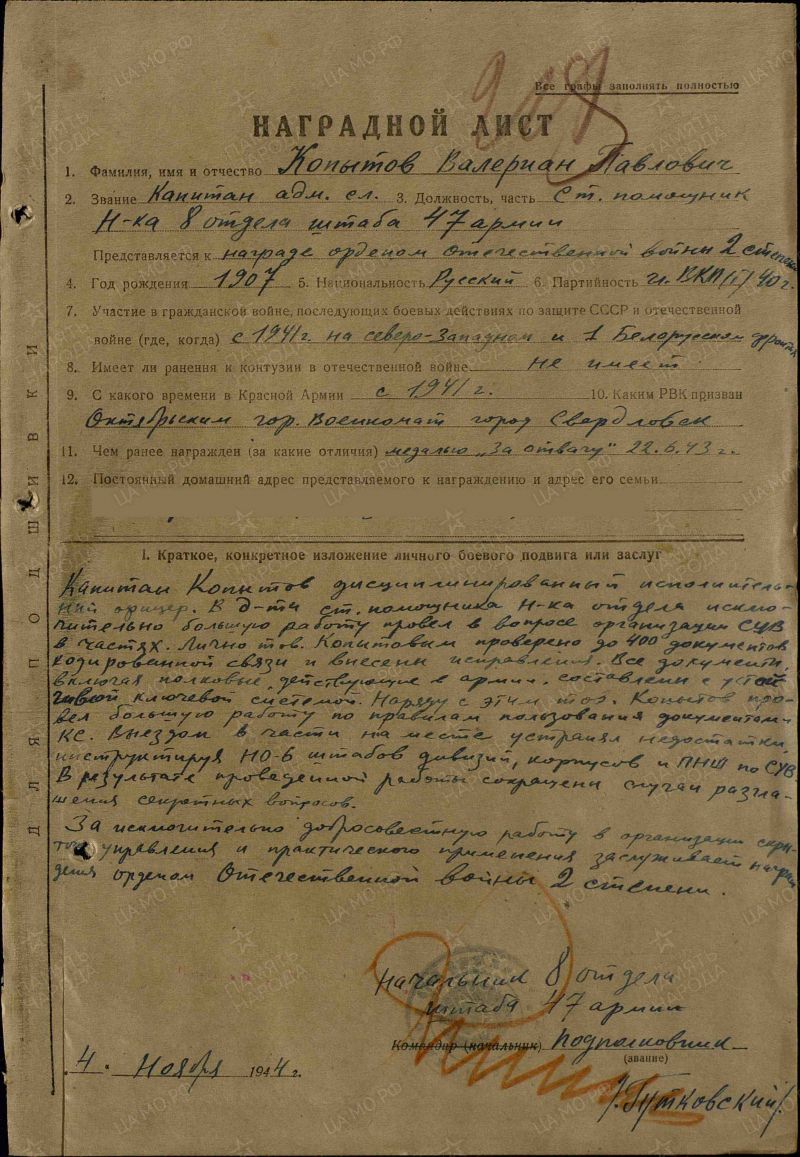 Все графы заполнять полностью
209
НАГРАДНОЙ ЛИСТ
1. Фамилия, имя и отчество Копытов Валериан Павлович
2. Звание Капитан адм. сл. 3. Должность, часть Ст. помощник
Н-ка 8 отдела штаба 47 армии
Представляется к награде орденом Отечественной войны 2 степени
4. Год рождения 1907 5. Национальность Русский 6. Партийность чл. ВКП(б) 40 г.
7. Участие в гражданской войне, последующих боевых действиях по защите СССР и отечественной
войне (где, когда) с 1941 г. на северо-Западном и 1 Белорусском фронтах
8. Имеет ли ранения и контузии в отечественной войне не имеет
9. С какого времени в Красной Армии с 1941 г. 10. Каким РВК призван
Октябрьским гор. Военкомат город Свердловск
11. Чем ранее награжден (за какие отличия) медалью „За отвагу" 22.6.43 г.
12. Постоянный домашний адрес представляемого к награждению и адрес его семьи
I. Краткое, конкретное изложение личного боевого подвига или заслуг
Капитан Копытов дисциплинированный исполнитель-
ный офицер. В д-ти ст. помощника Н-ка отдела исклю-
чительно большую работу провел в вопросе организации СУВ
в частях. Лично тов. Копытовым проверено до 400 документов
кодированной связи и внесены исправления. Все документы,
включая полковые, действующие в армии, составлены с устой
чивой ключевой системой. Наряду с этим тов. Копытов про-
вел большую работу по правилам пользования документами
КС. Выездом в части на месте устранял недостатки,
инструктируя НО-6 штабов дивизий, корпусов и ПНШ по СУВ
В результате проведенной работы сокращены случаи разгла-
шения секретных вопросов.
За исключительно добросовестную работу в организации скры-
того управления и практического применения заслуживает награж
дения орденом Отечественной войны 2 степени.
Начальник 8 отдела
штаба 47 армии
Командир (начальник) Подполковник
(звание)
„4. Ноября 1944 г.
/Гутковский/
ДЛЯ ПОДШИВКИ
ЦАМО.РФ
ПАМЯТЬ НАРОДА